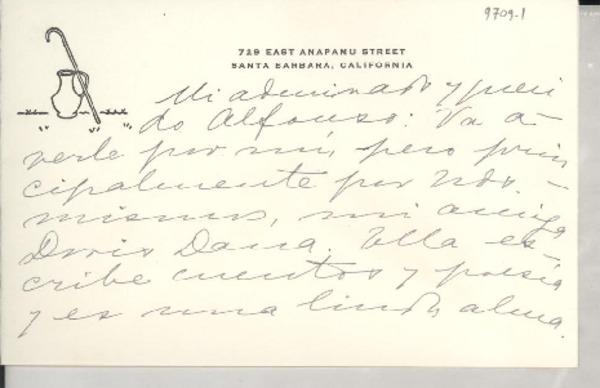 9709-1
729 EAST ANAPAMU STREET
SANTA BARBARA, CALIFORNIA
Mi admirado y queri
do Alfonso: Va a
verle por mí, pero prin
cipalmente por Vdo.
mismos, mi amiga
Doris Dana. Ella es-
cribe cuentos y poesía
y es una linda alma.